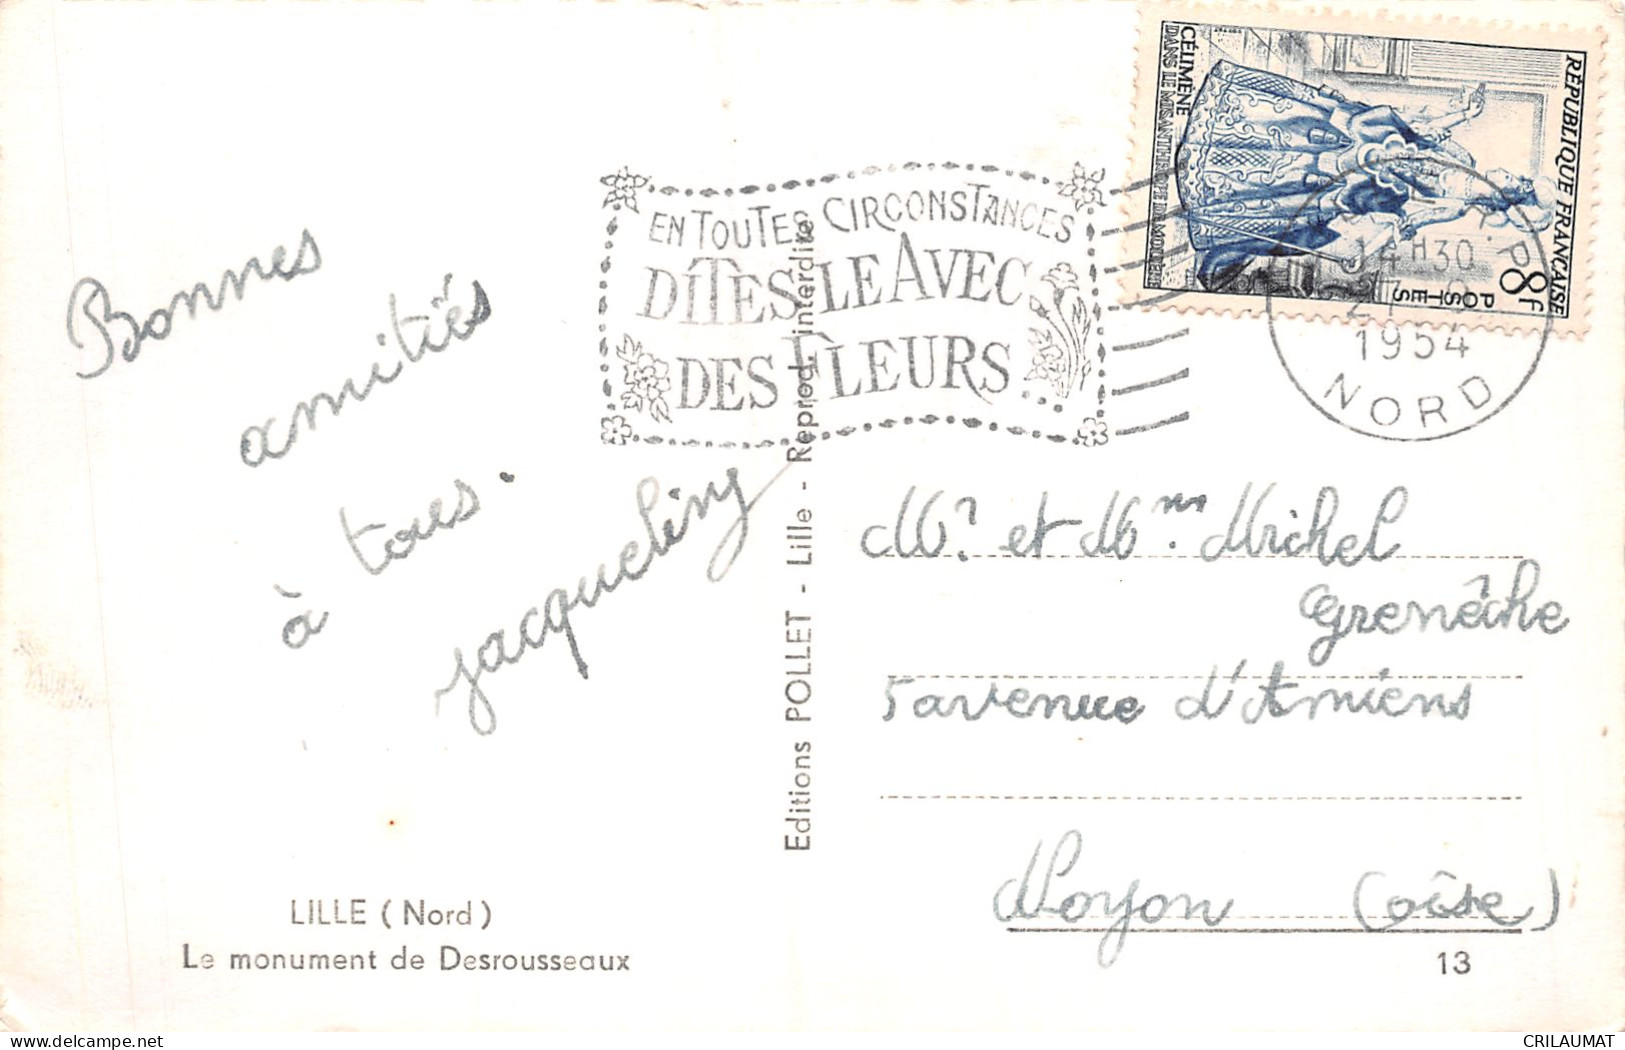 Bonnes
amitiés
à tous.
Jacqueliny
EN TOUTES CIRCONSTANCES
DÎTES LE AVEC
DES FLEURS
RÉPUBLIQUE FRANÇAISE
8F
POSTES
CÉLIMÈNE
DANS LE MISANTHROPE DE MOLIÈRE
14H30
1954
NORD
Mr et Mme. Michel
Grenêche
5 avenue d'Amiens
Noyon (Oise)
Editions POLLET - Lille - Reprod. interdite
LILLE (Nord)
Le monument de Desrousseaux
13
CRILAUMAT